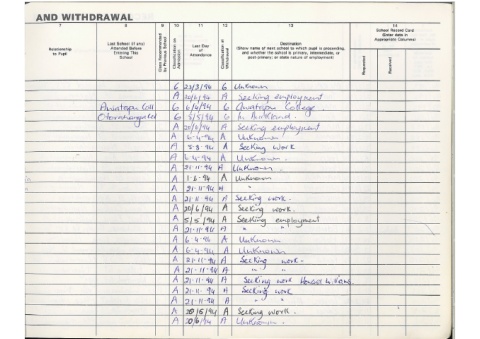 AND WITHDRAWAL
7 8 9 10 11 12 13 14
Relationship to Pupil
Last School (if any) Attended Before Entering This School
Classification on Admission
Last Day of Attendance
Classification at Withdrawal
Destination
(Show name of next school to which pupil is proceeding, and whether the school is primary, intermediate, or post-primary; or state nature of employment)
School Record Card (Enter date in Appropriate Column)
Requested
Received
G 23/3/94 G Unknown
A 20/6/94 A Seeking employment
G 6/4/94 G College.
G 5/5/94 G
A 20/6/94 A Seeking employment
A 6.4.94 A Unknown
A 5.8.94 A Seeking work
A 6.4.94 A Unknown.
A 21.11.94 A Unknown.
A 1.6.94 A Unknown
A 21.11.94 A "
A 21.11.94 A Seeking work.
A 20/6/94 A Seeking work.
A 5/5/94 A Seeking employment
A 21.11.94 A " "
A 6.4.94 A Unknown.
A 6.4.94 A Unknown
A 21.11.94 A Seeking work.
A 21.11.94 A " "
A 21.11.94 A Seeking work
A 21.11.94 A Seeking work
A 21.11.94 A " "
A 20/5/94 A Seeking work.
A 20/6/94 A Unknown.